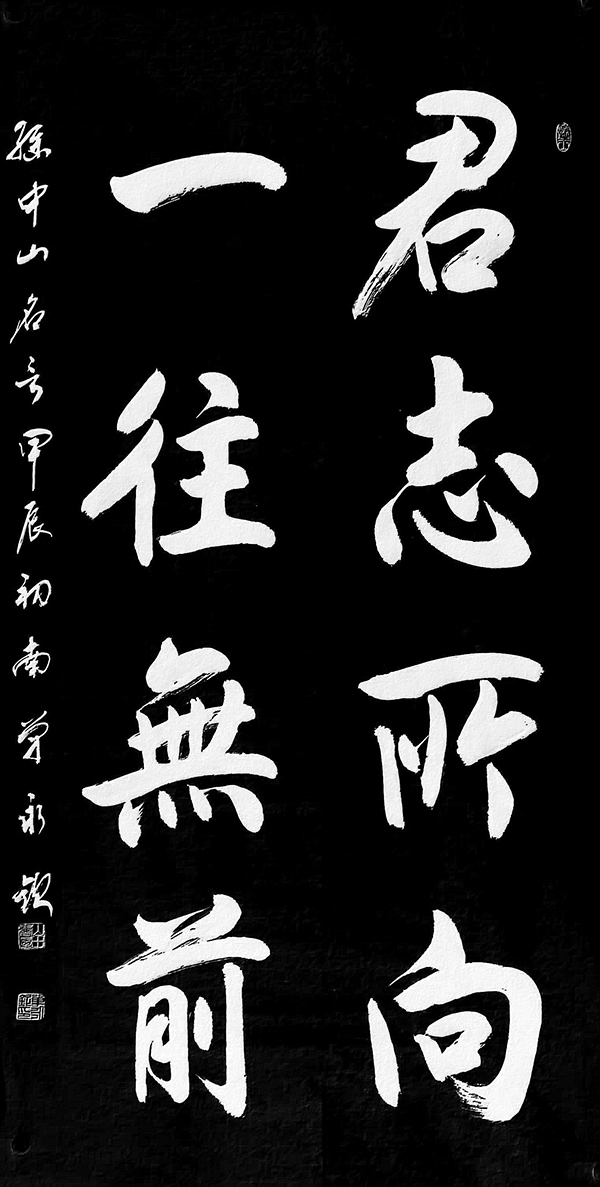 君志所向
一往無前
孫中山名言甲辰初南岸永钦